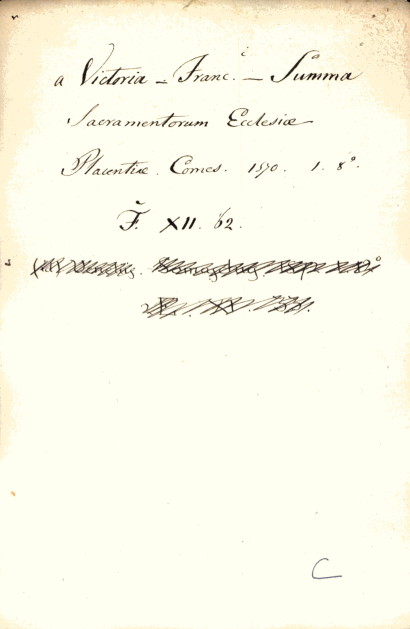 a Victoria _ Franc. — Summa
Sacramentorum Ecclesiæ
Placentiæ. Comes. 1570. 1. 8°.
F̃. XII. 62.
C